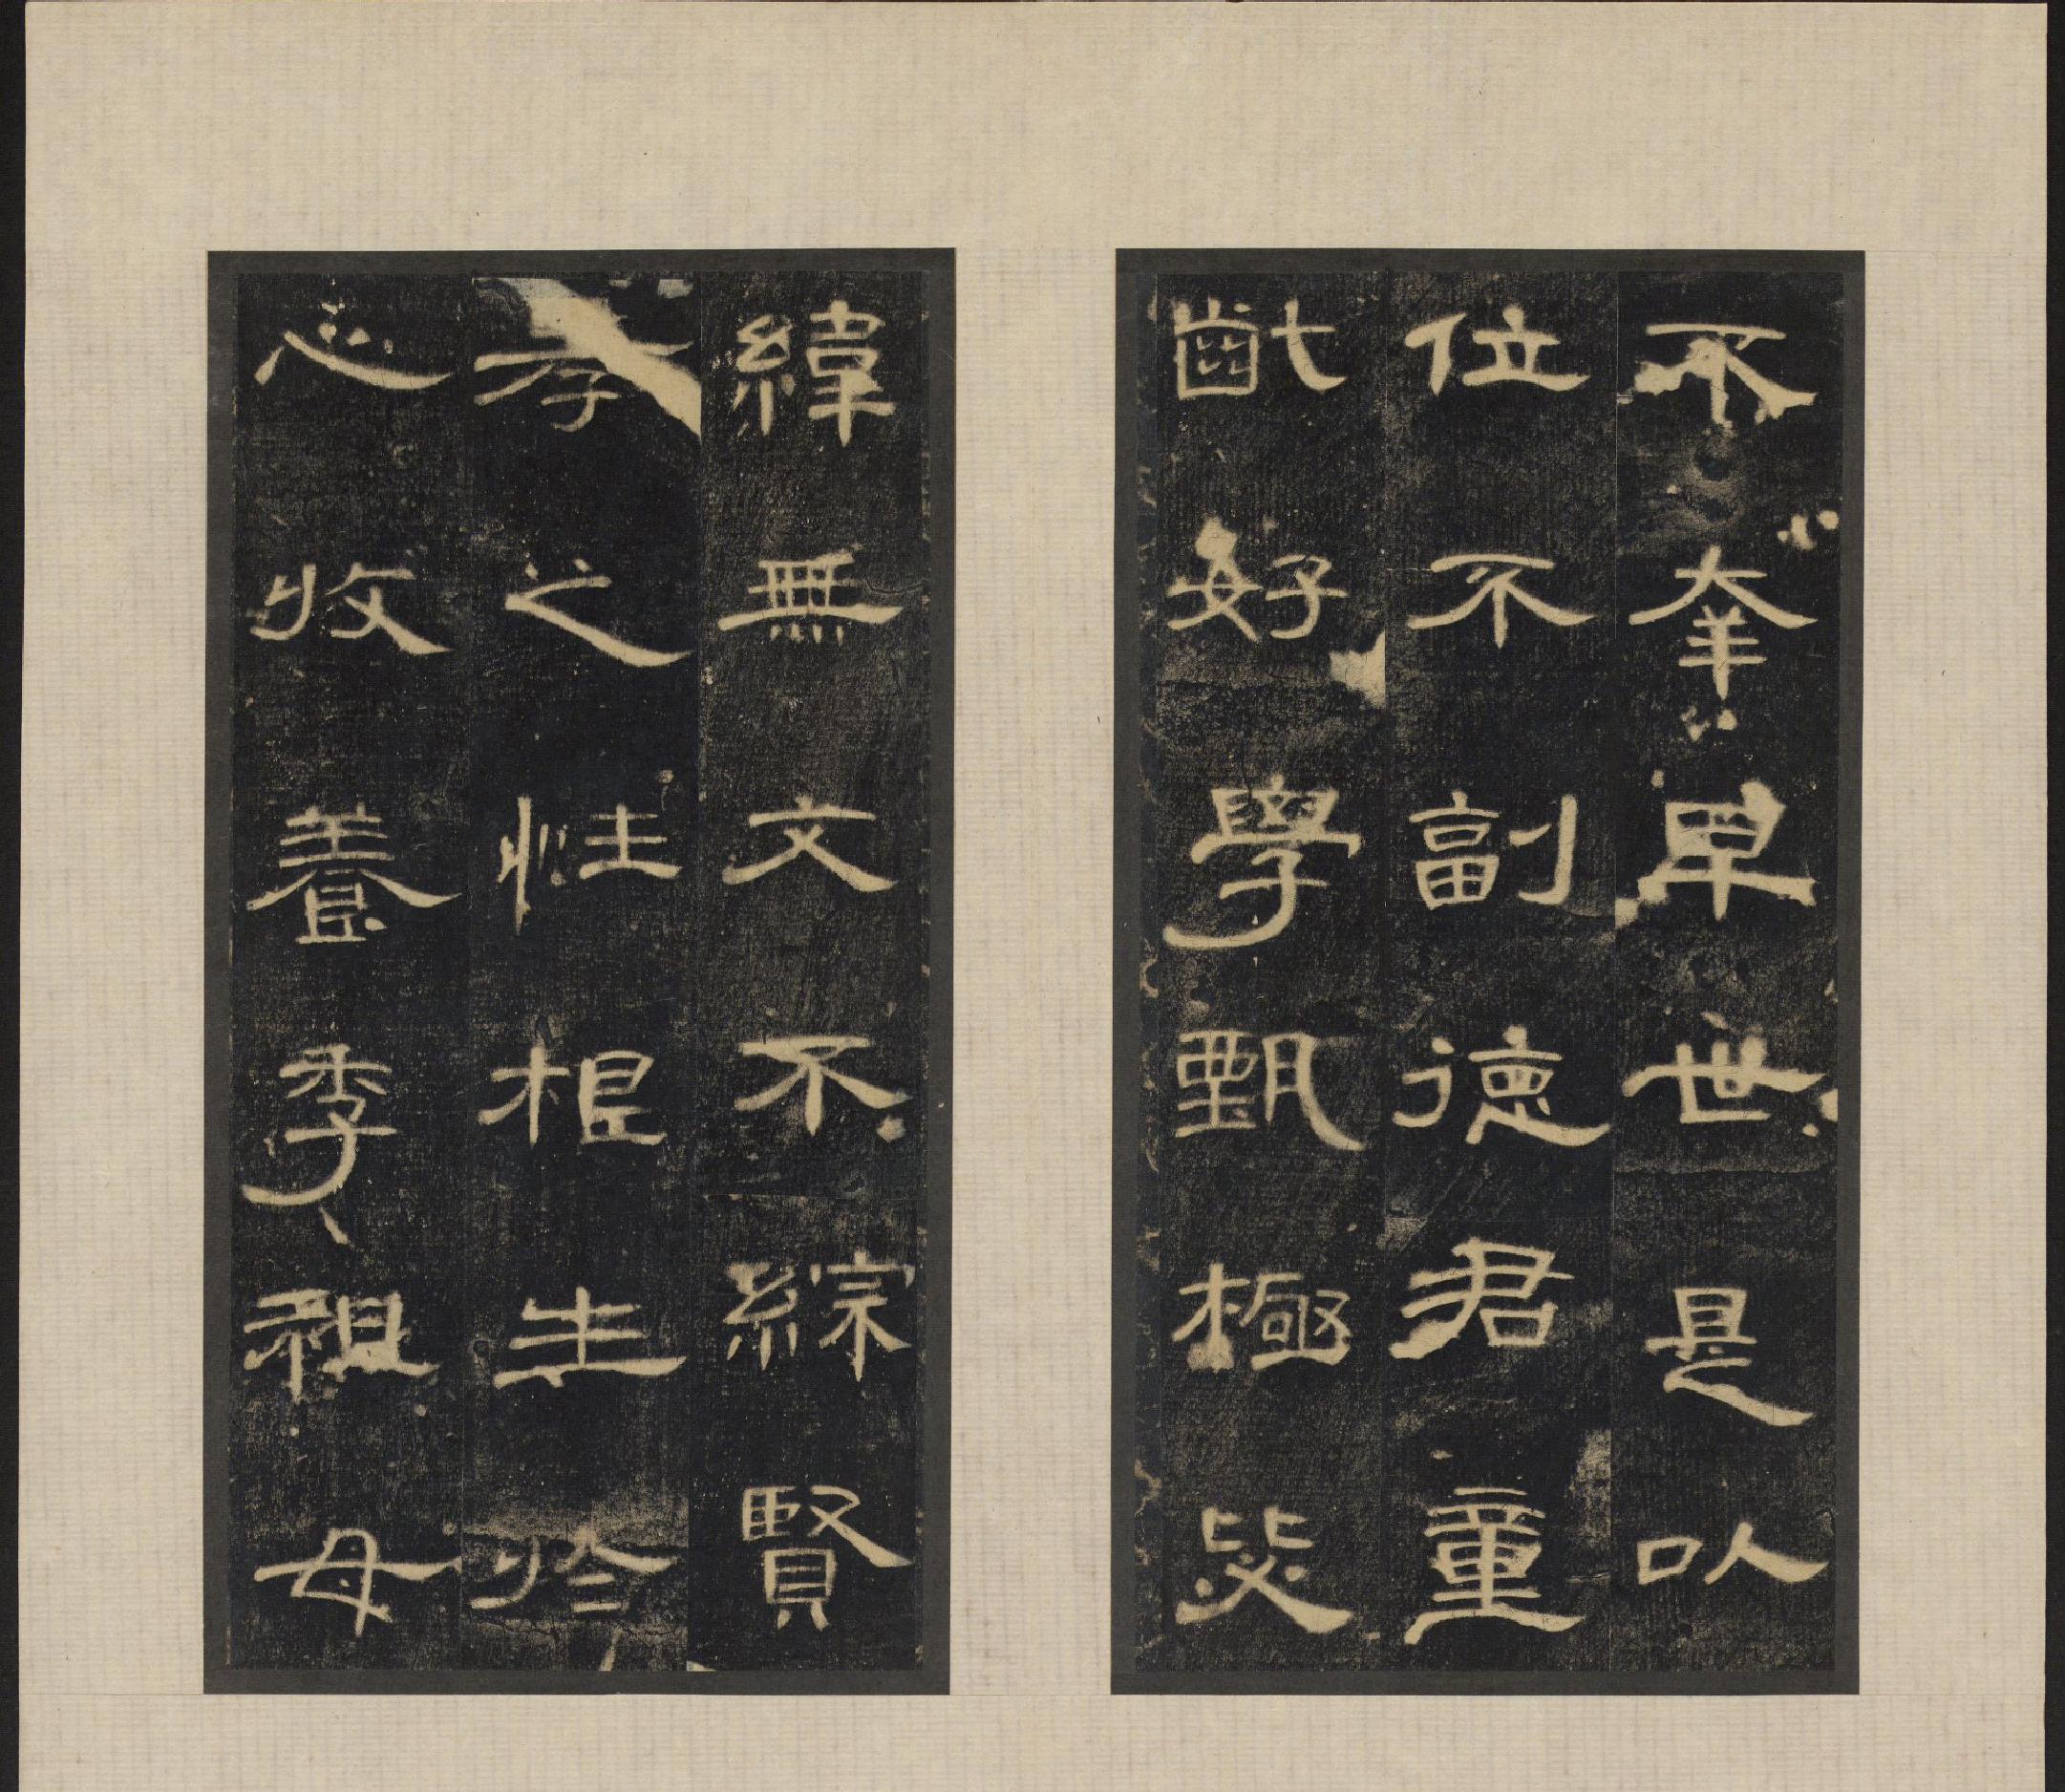 不幸早世是以
位不副德君童
齓好學甄極毖
緯無文不綜賢
孝之性根生於
心收養季祖母